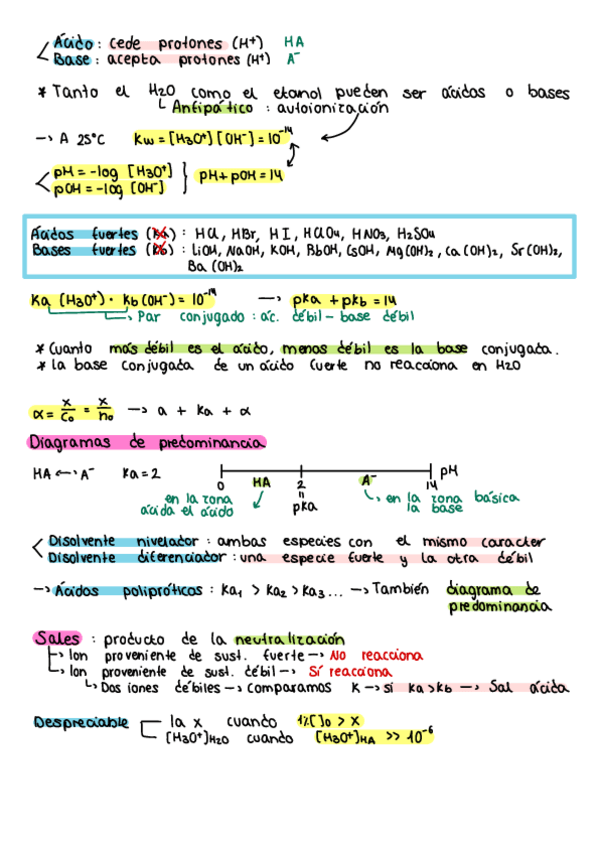 Ácido : cede protones (H⁺) HA
Base : acepta protones (H⁺) A⁻
* Tanto el H₂O como el etanol pueden ser ácidos o bases
↳ Antipático : autoionización
→ A 25°C Kw = [H₃O⁺] [OH⁻] = 10⁻¹⁴
pH = -log [H₃O⁺]
pOH = -log [OH⁻]
pH + pOH = 14
Ácidos fuertes (Ka) : HCl, HBr, HI, HClO₄, HNO₃, H₂SO₄
Bases fuertes (Kb) : LiOH, NaOH, KOH, RbOH, CsOH, Mg(OH)₂, Ca(OH)₂, Sr(OH)₂,
Ba(OH)₂
Ka (H₃O⁺) · Kb (OH⁻) = 10⁻¹⁴ → pKa + pKb = 14
↳ Par conjugado : ác. débil - base débil
* Cuanto más débil es el ácido, menos débil es la base conjugada.
* La base conjugada de un ácido fuerte no reacciona en H₂O
α = x/C₀ = x/n₀ → a + Ka + α
Diagramas de predominancia
HA ↔ A⁻ Ka = 2 0 HA 2 A⁻ 14 pH
en la zona ácida el ácido
pKa
↳ en la zona básica la base
Disolvente nivelador : ambas especies con el mismo caracter
Disolvente diferenciador : una especie fuerte y la otra débil
→ Ácidos polipróticos : Ka₁ > Ka₂ > Ka₃ ... → También diagrama de
predominancia
Sales : producto de la neutralización
→ Ion proveniente de sust. fuerte → No reacciona
→ Ion proveniente de sust. débil → Sí reacciona
↳ Dos iones débiles → comparamos K → si Ka > Kb → Sal ácida
Despreciable la x cuando 1%[ ]₀ > x
[H₃O⁺]H₂O cuando [H₃O⁺]HA >> 10⁻⁶